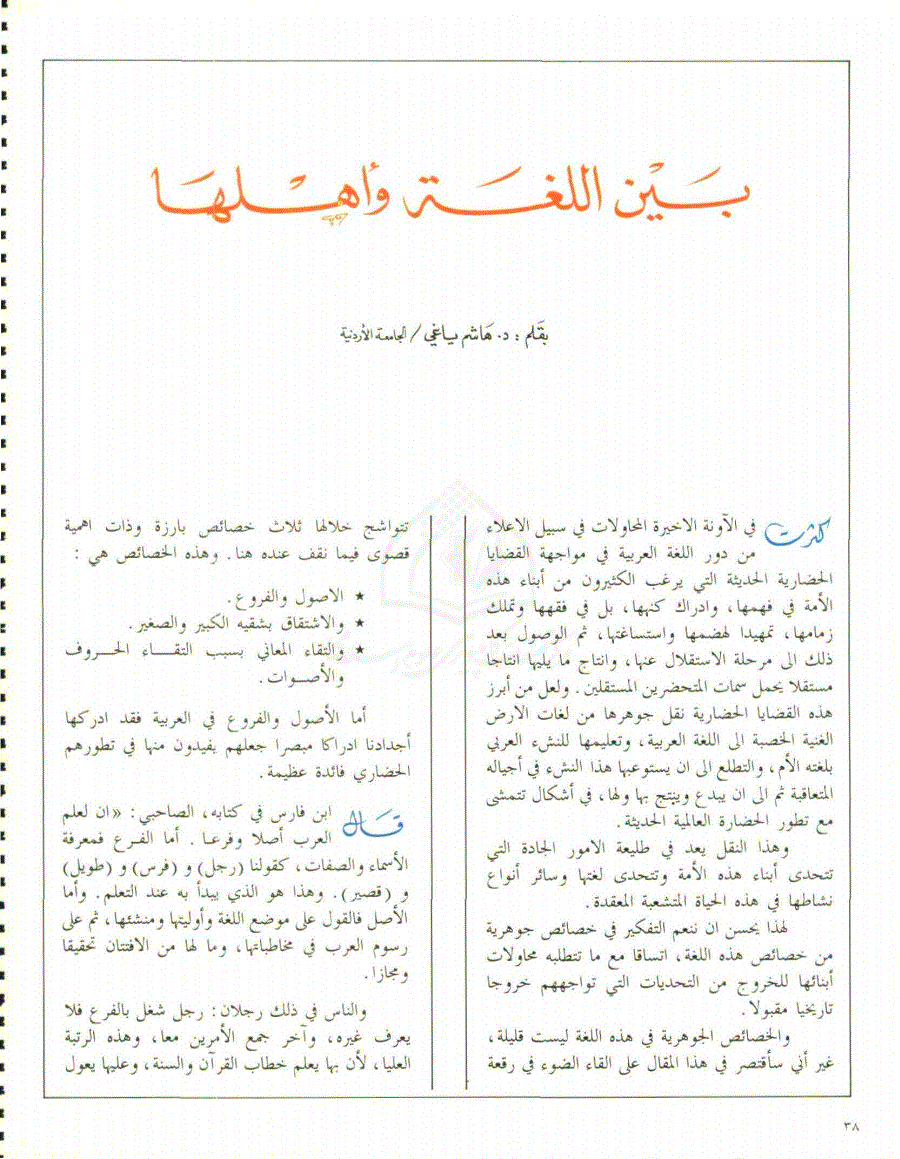 بين اللغة وأهلها
بقلم : د. هاشم ياغي / الجامعة الأردنية
كثرت في الآونة الاخيرة المحاولات في سبيل الاعلاء
من دور اللغة العربية في مواجهة القضايا
الحضارية الحديثة التي يرغب الكثيرون من أبناء هذه
الأمة في فهمها، وادراك كنهها، بل في فقهها وتملك
زمامها، تمهيدا لهضمها واستساغتها، ثم الوصول بعد
ذلك الى مرحلة الاستقلال عنها، وانتاج ما يليها انتاجا
مستقلا يحمل سمات المتحضرين المستقلين. ولعل من أبرز
هذه القضايا الحضارية نقل جوهرها من لغات الارض
الغنية الخصبة الى اللغة العربية، وتعليمها للنشء العربي
بلغته الأم، والتطلع الى ان يستوعبها هذا النشء في أجياله
المتعاقبة ثم الى ان يبدع وينتج بها ولها، في أشكال تتمشى
مع تطور الحضارة العالمية الحديثة.
وهذا النقل يعد في طليعة الامور الجادة التي
تتحدى أبناء هذه الأمة وتتحدى لغتها وسائر أنواع
نشاطها في هذه الحياة المتشعبة المعقدة.
لهذا يحسن ان ننعم التفكير في خصائص جوهرية
من خصائص هذه اللغة، اتساقا مع ما تتطلبه محاولات
أبنائها للخروج من التحديات التي تواجههم خروجا
تاريخيا مقبولا.
والخصائص الجوهرية في هذه اللغة ليست قليلة،
غير أني سأقتصر في هذا المقال على القاء الضوء في رقعة
تتواشج خلالها ثلاث خصائص بارزة وذات اهمية
قصوى فيما نقف عنده هنا. وهذه الخصائص هي :
★ الاصول والفروع.
★ والاشتقاق بشقيه الكبير والصغير.
★ والتقاء المعاني بسبب التقـــاء الحـــروف
والأصـــوات.
أما الأصول والفروع في العربية فقد ادركها
أجدادنا ادراكا مبصرا جعلهم يفيدون منها في تطورهم
الحضاري فائدة عظيمة.
قـال ابن فارس في كتابه، الصاحبي: «ان لعلم
العرب أصلا وفرعـا. أما الفـرع فمعرفة
الأسماء والصفات، كقولنا (رجل) و (فرس) و (طويل)
و (قصير). وهذا هو الذي يبدأ به عند التعلم. وأما
الأصل فالقول على موضع اللغة وأوليتها ومنشئها، ثم على
رسوم العرب في مخاطباتها، وما لها من الافتنان تحقيقا
ومجازا.
والناس في ذلك رجلان: رجل شغل بالفرع فلا
يعرف غيره، وآخر جمع الأمرين معا، وهذه الرتبة
العليا، لأن بها يعلم خطاب القرآن والسنة، وعليها يعول
٣٨